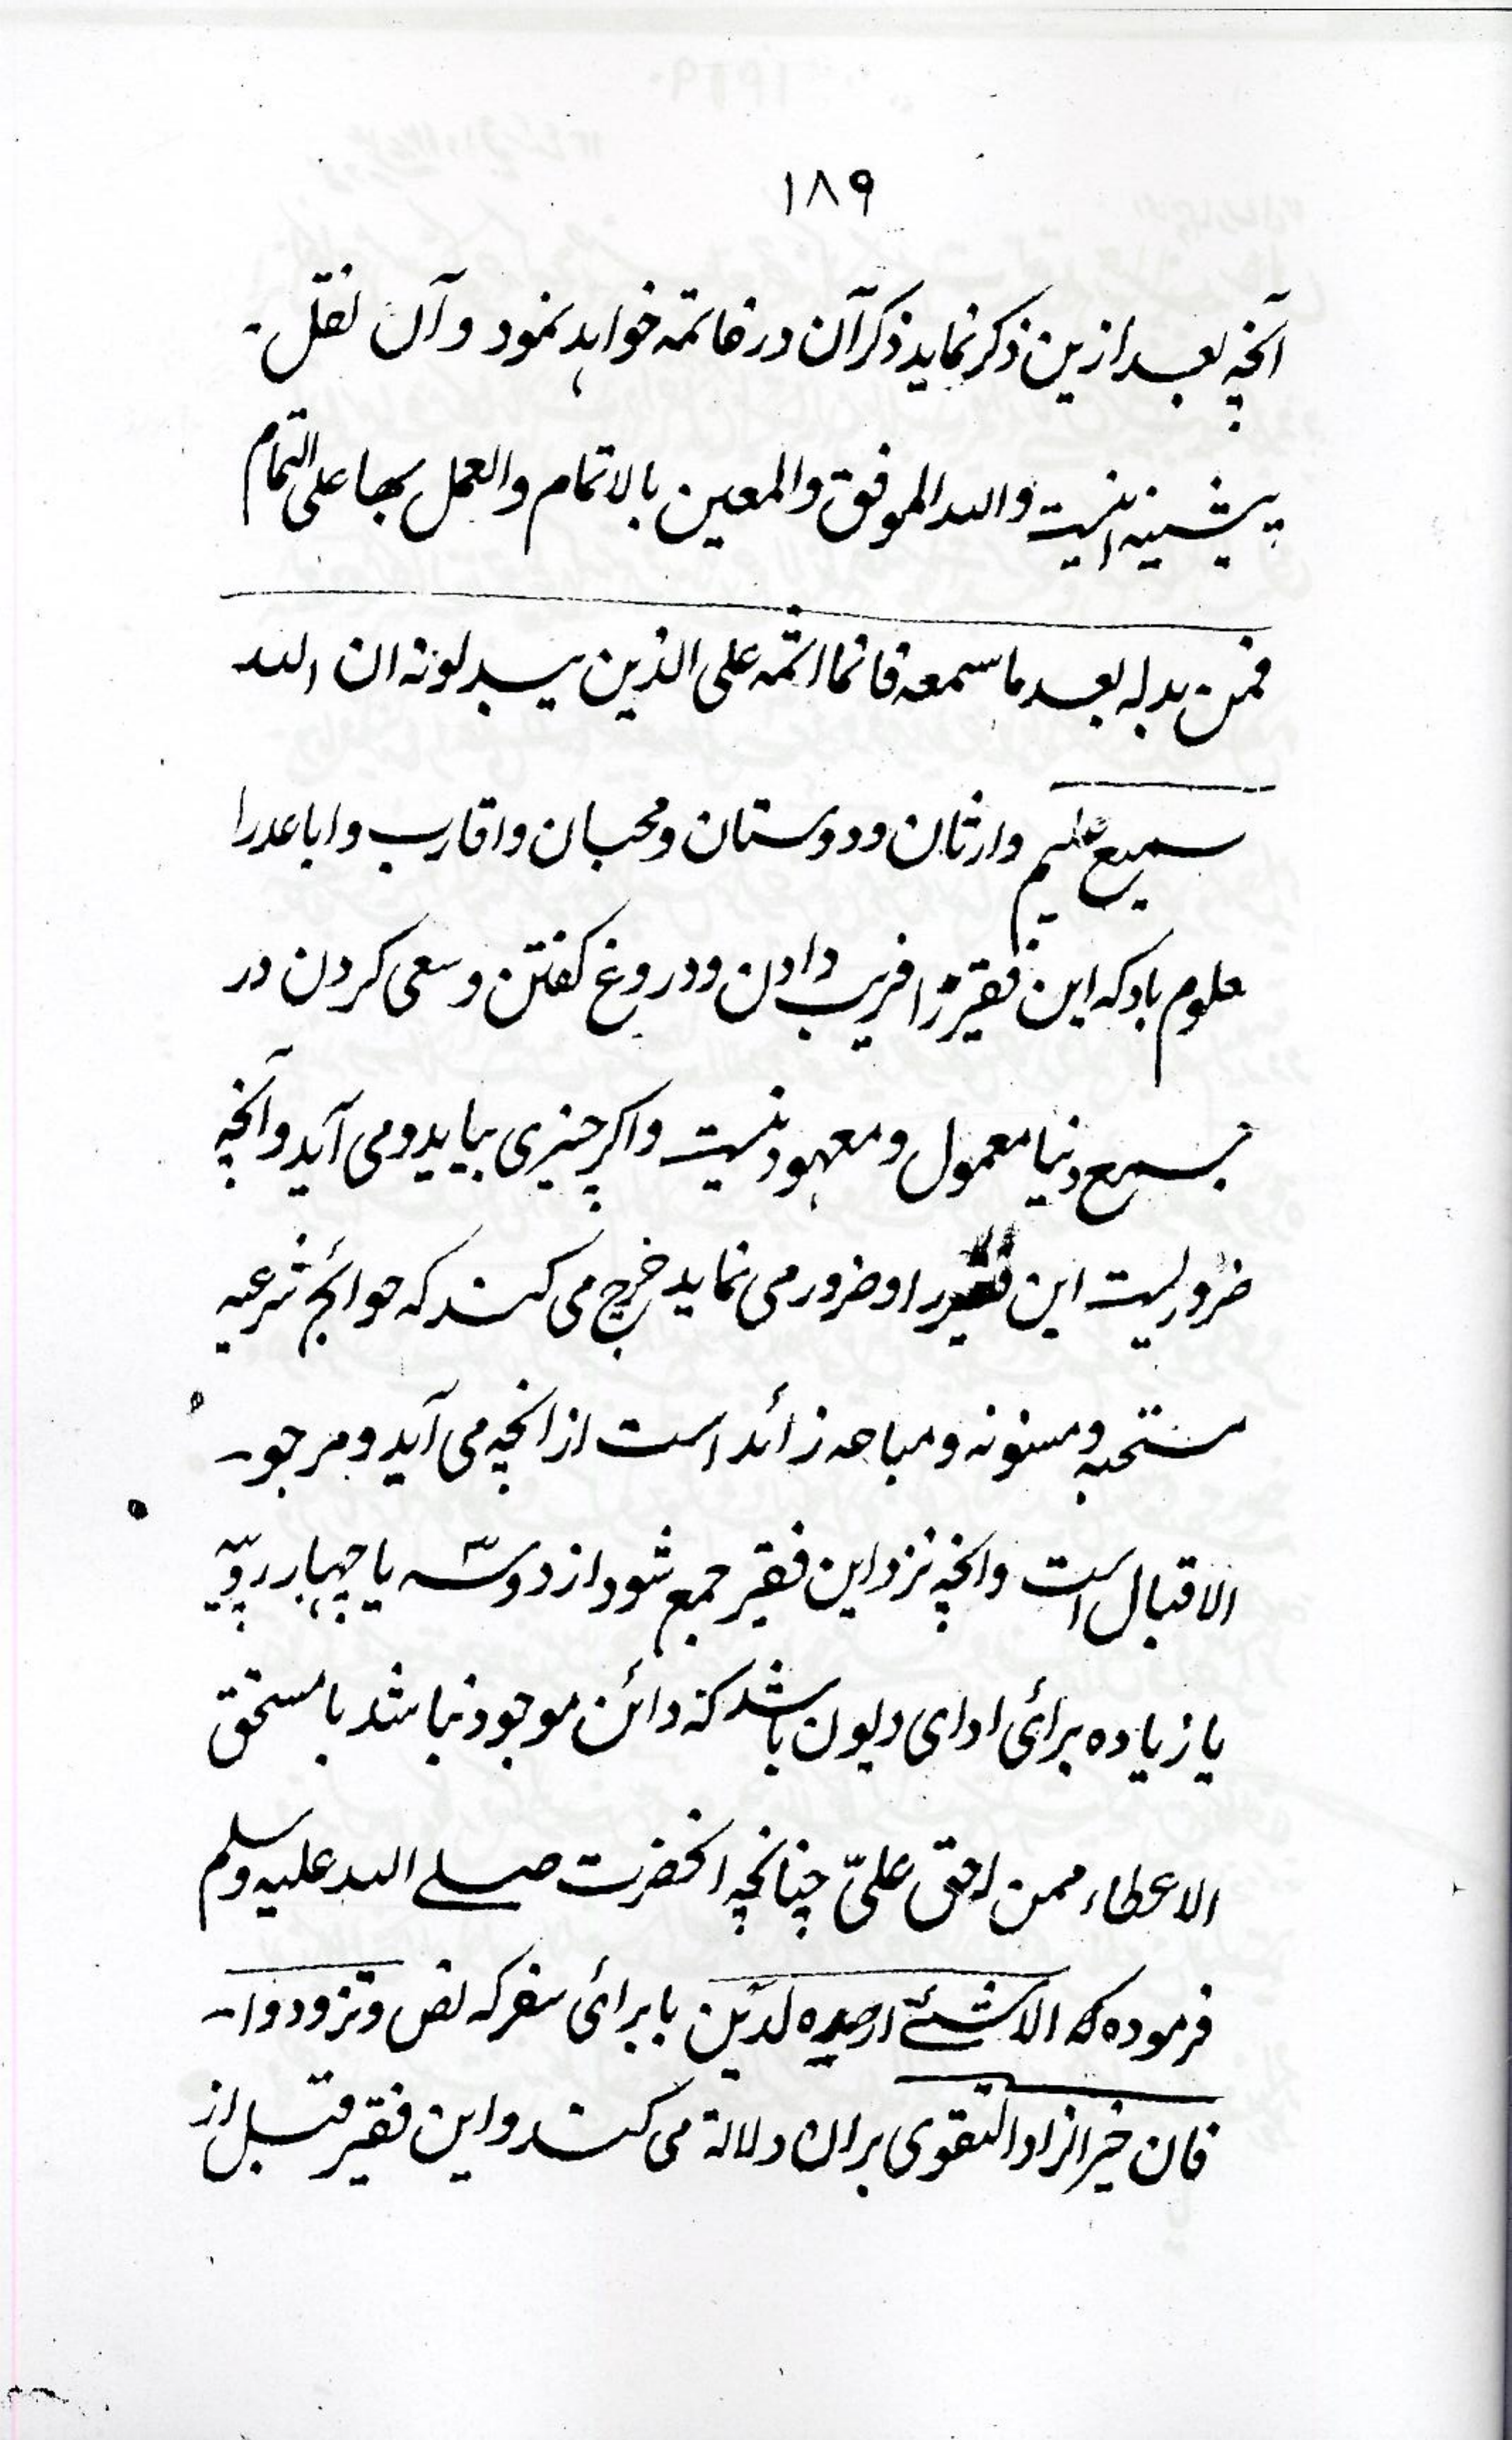 ۱۸۹
آنچه بعد ازین ذکر نماید ذکر آن در خاتمه خواهد نمود و آن نقل
پیشینه اینست والله الموفق والمعین بالاتمام والعمل بها علی التمام
فمن بدله بعد ما سمعه فانما اثمه علی الذین یبدلونه ان الله
سمیع علیم وارثان و دوستان و محبان و اقارب و اباعد را
معلوم باد که این فقیر را فریب دادن و دروغ کفتن و سعی کردن در
جمیع دنیا معمول و معهود نیست و اکر چیزی بیاید و می آید و آنچه
ضروریست این فقیر را و ضرور می نماید خرچ می کند که حوائج شرعیه
مستحبه و مسنونه و مباحه زائد است از انچه می آید و مرجو
الاقبال است وانچه نزد این فقیر جمع شود از دو سه یا چهار روپیه
یا زیاده برائی ادای دیون باشد که دائن موجود نباشد یا مستحق
الاعطاء ممن احق علیّ چنانچه انحضرت صلے الله علیه وسلم
فرموده که الا شئے ارصده لدَین یا برائی سفر که نص وتزودوا
فان خیر الزاد التقوی بران دلالة می کند و این فقیر قبل از